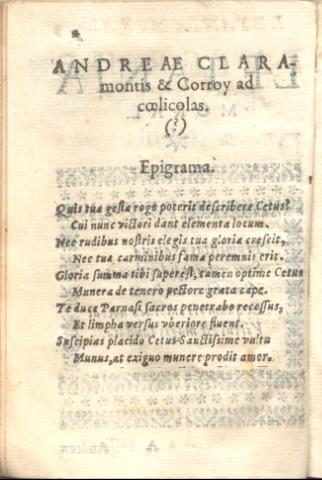 ANDREAE CLARA-
montis & Corroy ad
cœlicolas.
(?)
Epigrama.
Quis tua gesta rogo poterit describere Cetus?
Cui nunc victori dant elementa locum.
Nec rudibus nostris elegis tua gloria crescit,
Nec tua carminibus fama peremnis erit.
Gloria summa tibi superest, tamen optime Cetus
Munera de tenero pectore grata cape.
Te duce Parnasi sacros penetrabo recessus,
Et limpha versus vberiore fluent.
Suscipias placido Cetus Sanctissime vultu
Munus, at exiguo munere prodit amor.